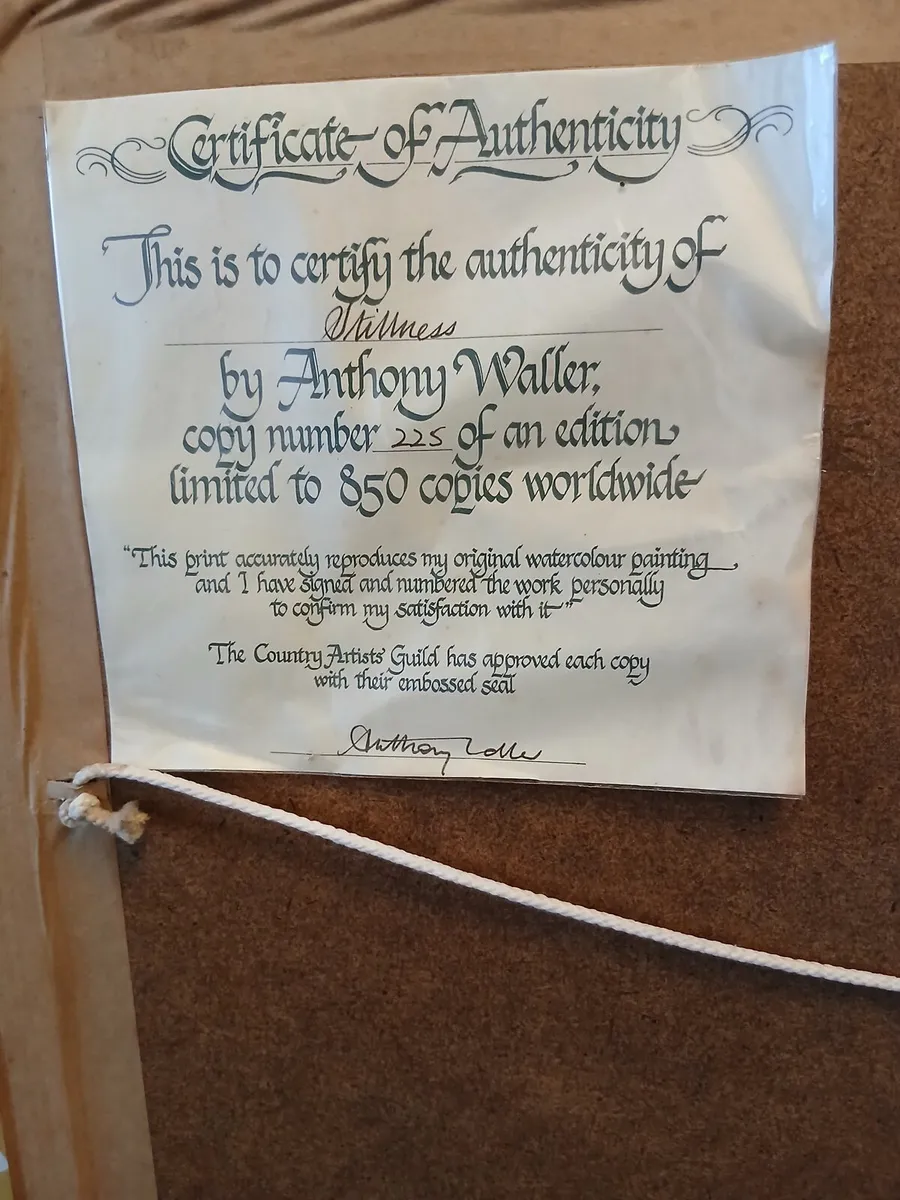 Certificate of Authenticity
This is to certify the authenticity of
Stillness
by Anthony Waller,
copy number 225 of an edition
limited to 850 copies worldwide
"This print accurately reproduces my original watercolour painting
and I have signed and numbered the work personally
to confirm my satisfaction with it"
The Country Artists' Guild has approved each copy
with their embossed seal
Anthony Waller